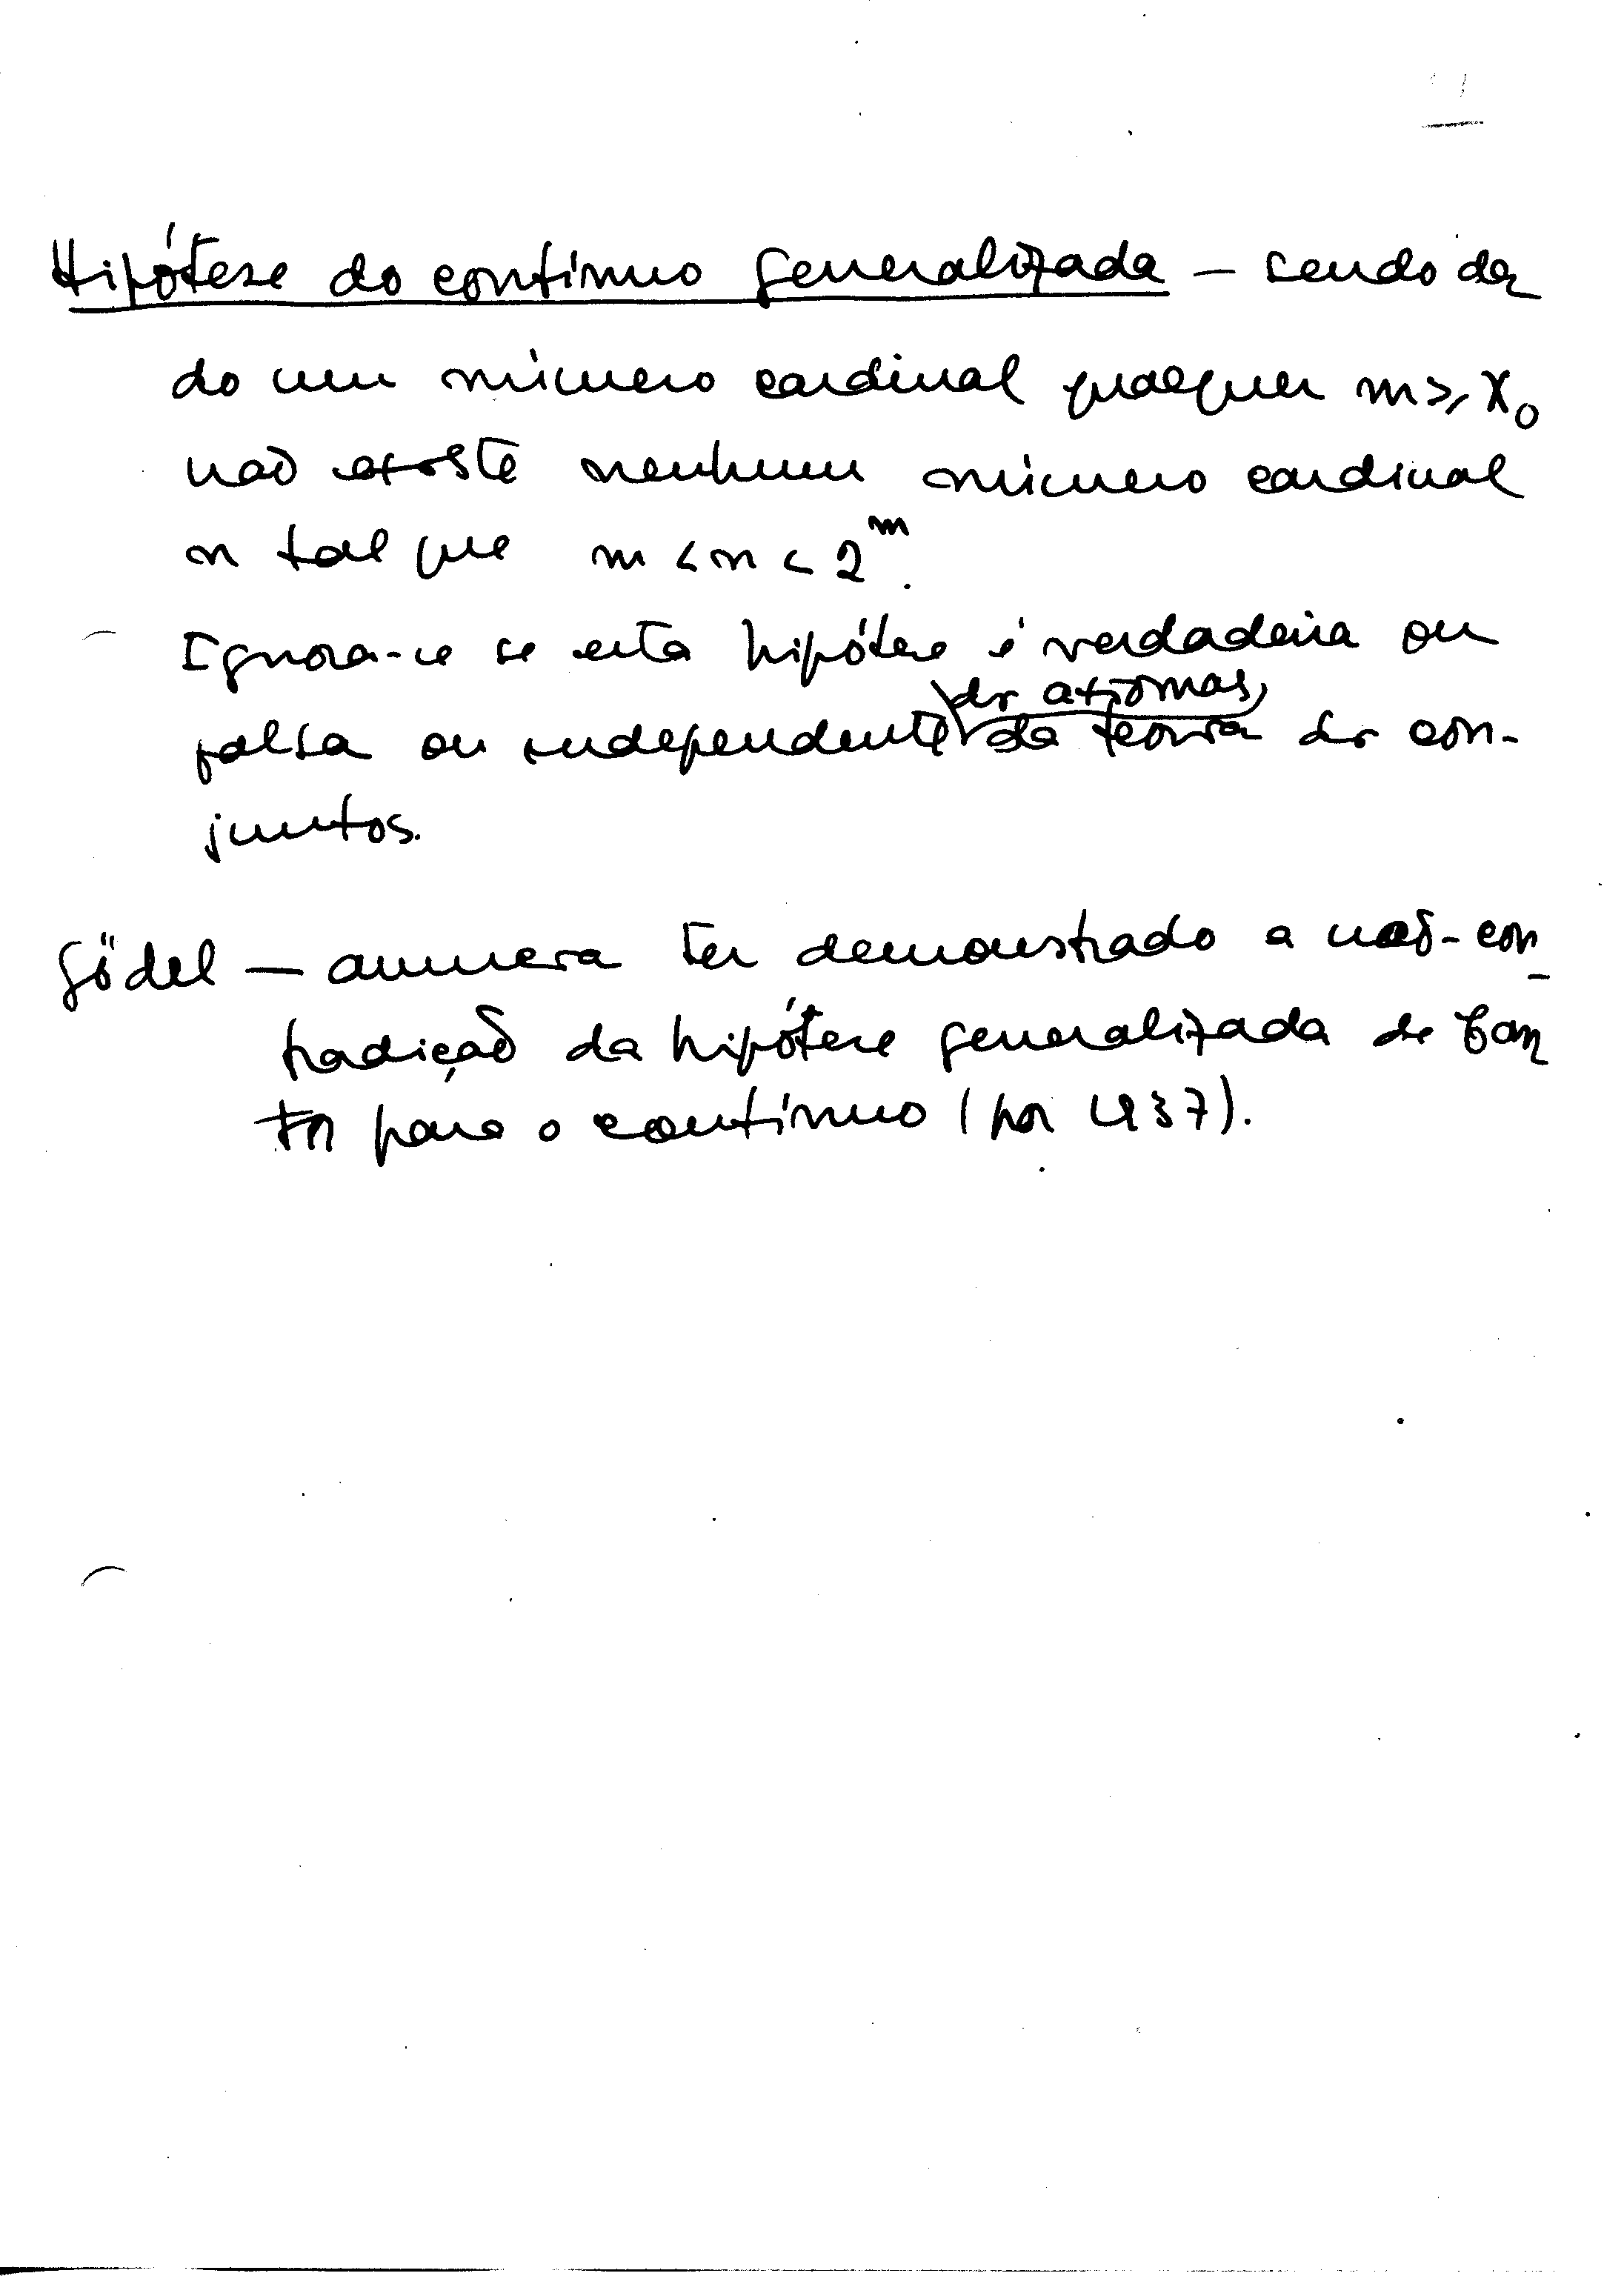 Hipótese do contínuo generalizada – sendo da
do um número cardinal qualquer m ≥ ℵ₀
não existe nenhum número cardinal
n tal que m < n < 2ᵐ.
Ignora-se se esta hipótese é verdadeira ou
dos axiomas,
falsa ou independente da teoria dos con-
juntos.
Gödel — anuncia ter demonstrado a não-con
tradição da hipótese generalizada de Can
tor para o contínuo (por 1937).